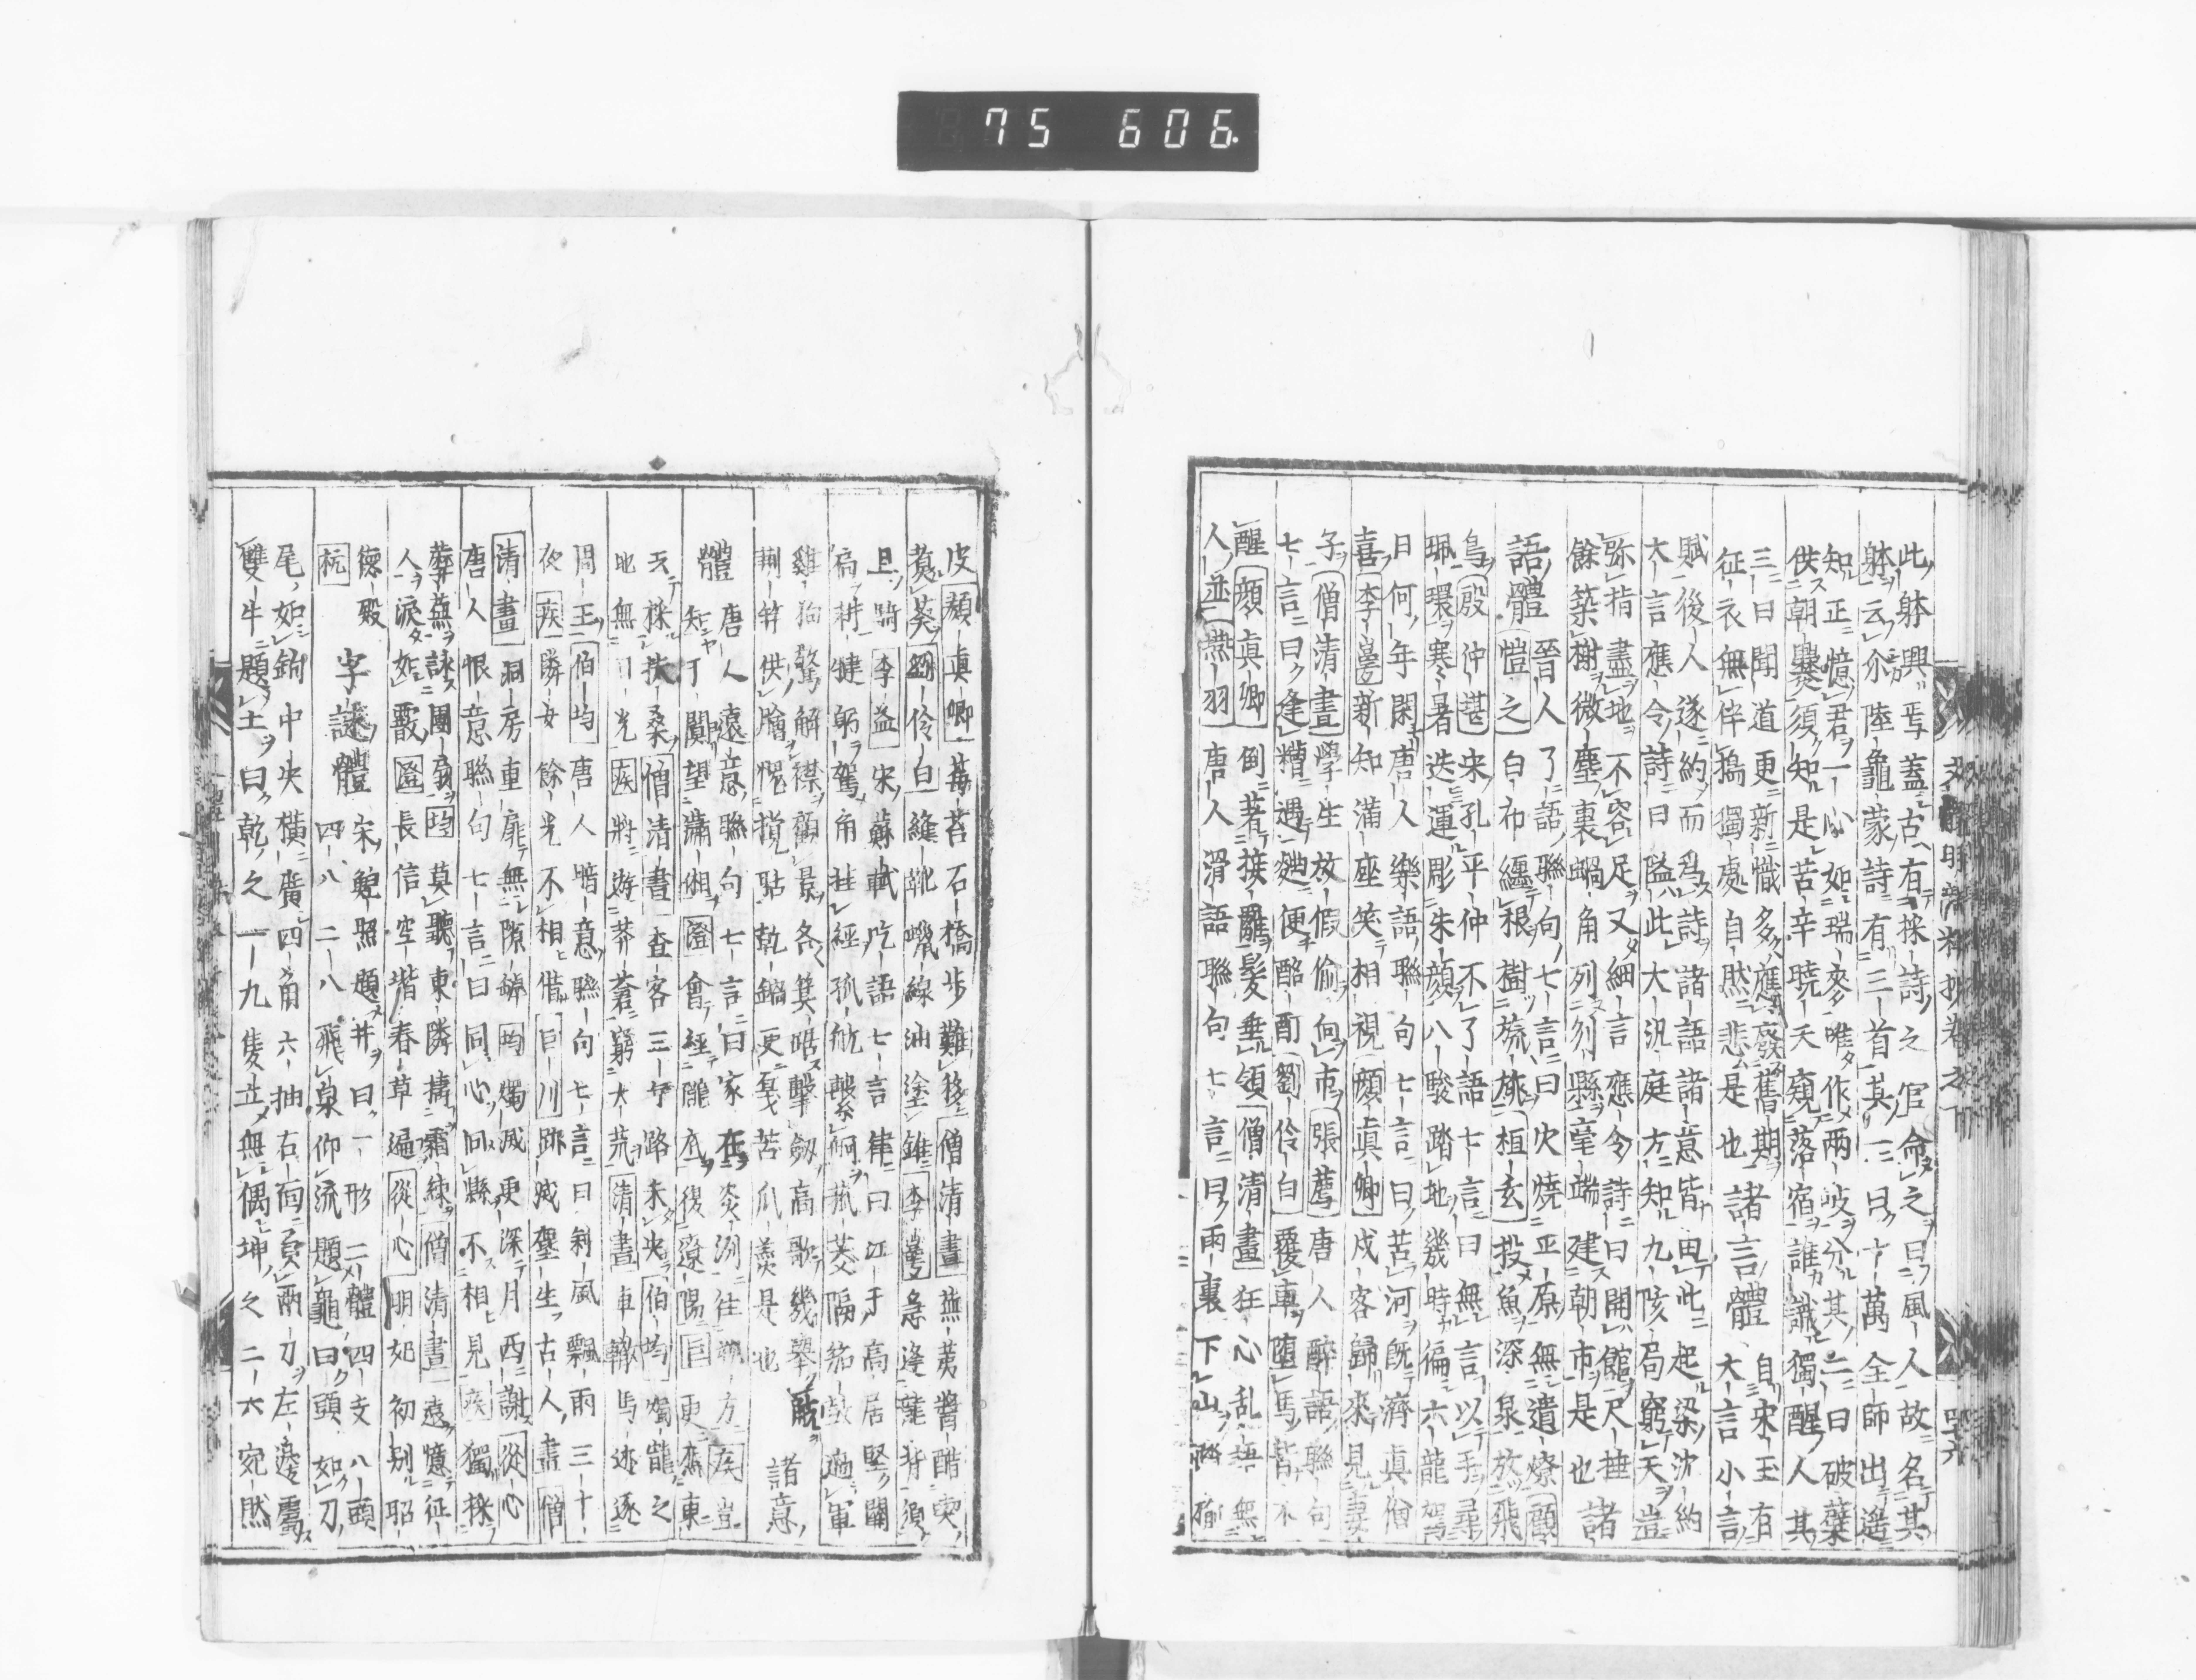 75 606.
此躰興焉蓋古有採詩之官命之曰風人故名其
躰云尒陸龜蒙詩有三首其一曰十萬全師出遥
知正憶君一心如瑞麥唯作兩岐分其二曰破蘗
供朝爨須知是苦辛曉天窺落宿誰識獨醒人其
三曰聞道更新幟多應廢舊期
征衣無伴搗獨處自然悲是也
諸言體
自宋玉有
大言小言
賦後人遂約而爲詩諸語諸意皆由此起梁沈約
大言應令詩曰隘此大汎庭方知九陔局窮天豈
弥指盡地不容足又細言應令詩曰開館尺捶
餘築榭微塵裏蝸角列州縣毫端建朝市是也
諸
語體
晉人了語聯句七言曰火燒平原無遺燎 顧
愷之 白布纏根樹旒旐 桓玄 投魚深泉放飛
鳥 殷仲堪 宋孔平仲不了語七言曰無言以手尋
珮環寒暑迭運彫朱顔八駿踏地幾時徧六龍駕
日何年閑唐人樂語聯句七言曰苦河既濟真僧
喜 李崿 新知滿座笑相視 顔真卿 戍客歸來見妻
子 僧清晝 學生放假偷向市 張薦 唐人醉語聯句
七言曰逢糟遇麴便酩酊 劉伶白 覆車墮馬皆不
醒 顔真卿 倒著接䍦髮垂領 僧清晝 狂心乱語無
人並 燕羽 唐人滑語聯句七言曰雨裏下山
皮 顔真卿 莓苔石橋步難移 僧清晝 蕪荑醬醋喫
葵 劉伶白 縫靴蠟線油塗錐 李崿 急逢龍背須
且騎 李益 宋蘇軾吃語七言律曰江干高居堅關
扃耕犍躬駕角挂經孤航繫舸菰茭隔笳鼓過軍
雞狗驚解襟顧景各箕踞擊劔高歌幾舉觥
荆笄供膾愧攪聒乾鍋更戞苦瓜羹是也
諸意
體
唐人遠意聯句七言曰家在炎洲往朔方 疾 豈
知于闐望瀟湘 澄 會經隴底復遼陽 巨 更爲東
去採扶桑 僧清晝 査客三千路未央 伯均 燭龍之
地無日光 疾 將遊莽蒼窮大荒 清晝 車轍馬迹逐
周王 伯均 唐人暗意聯句七言曰剌風飄雨三十
夜 疾 隣女餘光不相借 巨川 跡滅塵生古人畫 僧
清晝 洞房重扉無隙罅 均 燭滅更深月西謝 從心
唐人恨意聯句七言曰同心同縣不相見 疾 獨採
蘼蕪詠團扇 均 莫聽東隣擣霜練 僧清晝 遠憶征
人淚如霰 澄 長信空堦春草遍 從心 明妃初别昭
德殿
字謎體
宋鮑照題井曰一形二體四支八頭
四八二八飛泉仰流題龜曰頭如刀
尾如鉤中央橫廣四角六抽右面負兩刀左邊屬
雙牛題土曰乾之一九隻立無偶坤之二六宛然